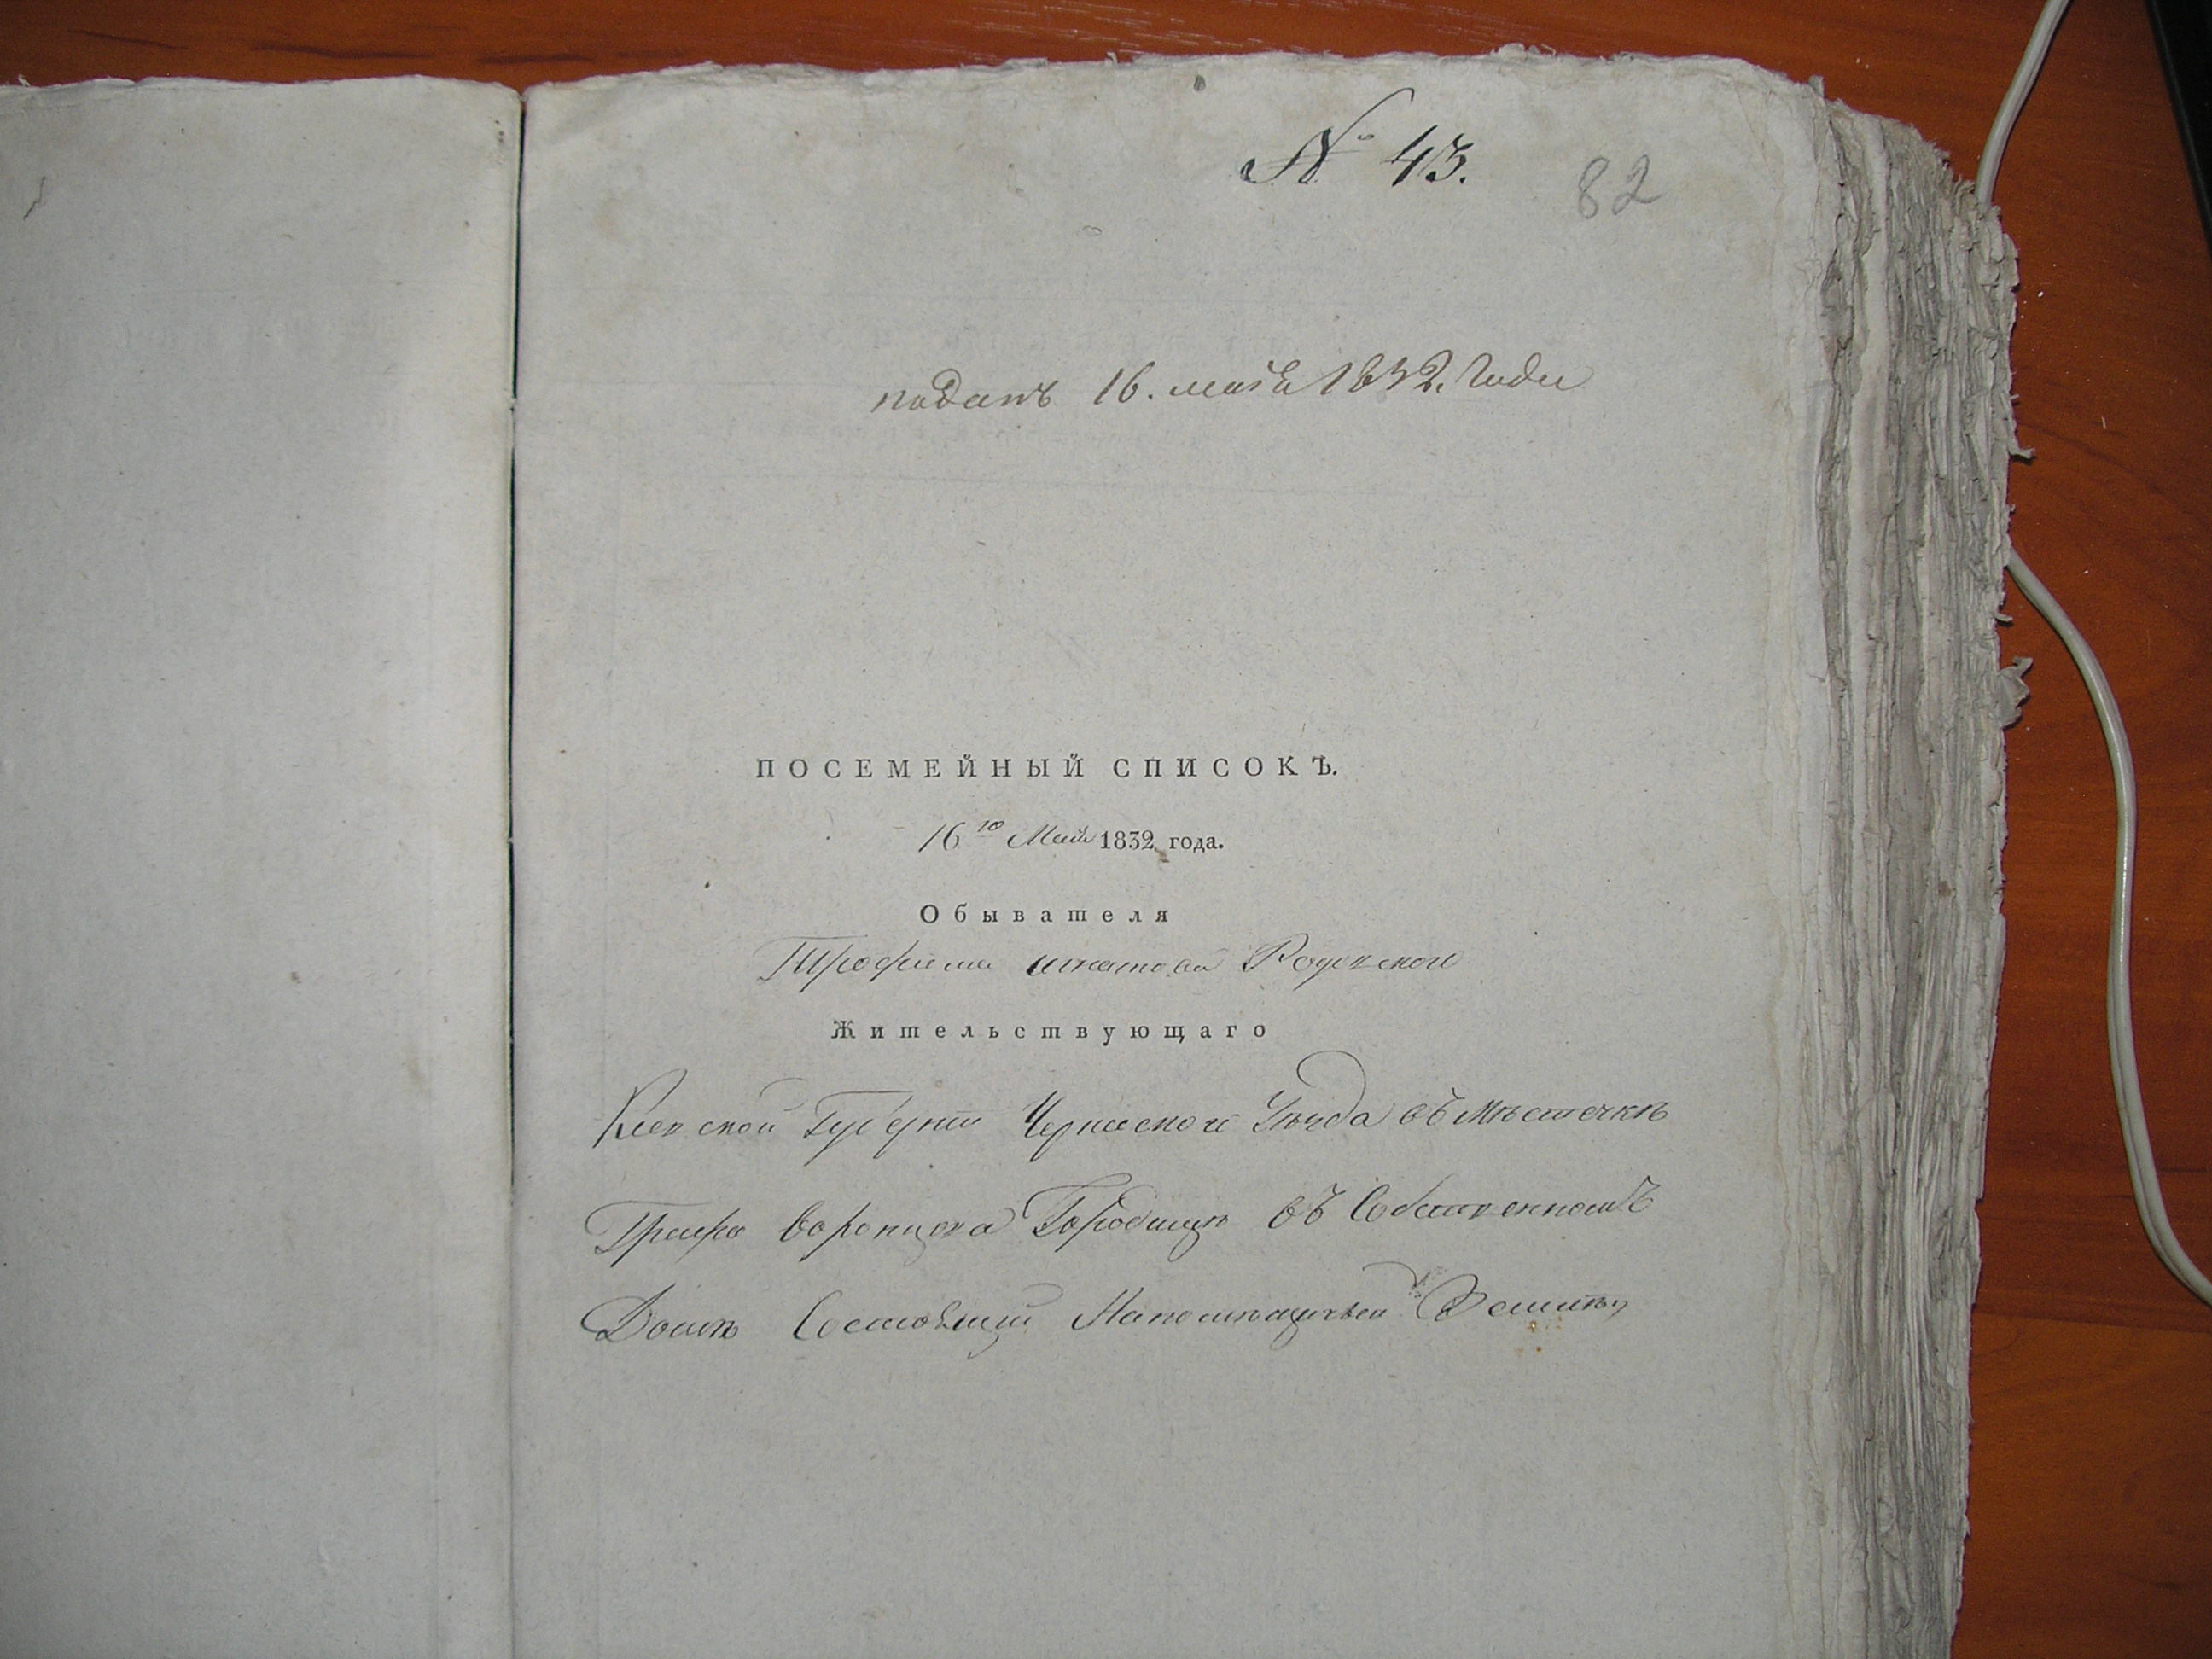 № 43.
82
поданъ 16. маія 1832. Года
ПОСЕМЕЙНЫЙ СПИСОКЪ.
16го Маія 1832 года.
Обывателя
Трофима Игнатова
Жительствующаго
Киевской Губерніи Черкаского Уѣзда въ Мѣстечкѣ
Графа Воронцова Городищѣ въ Собственномъ
Домѣ Состоящій На помѣщичьей Землѣ,